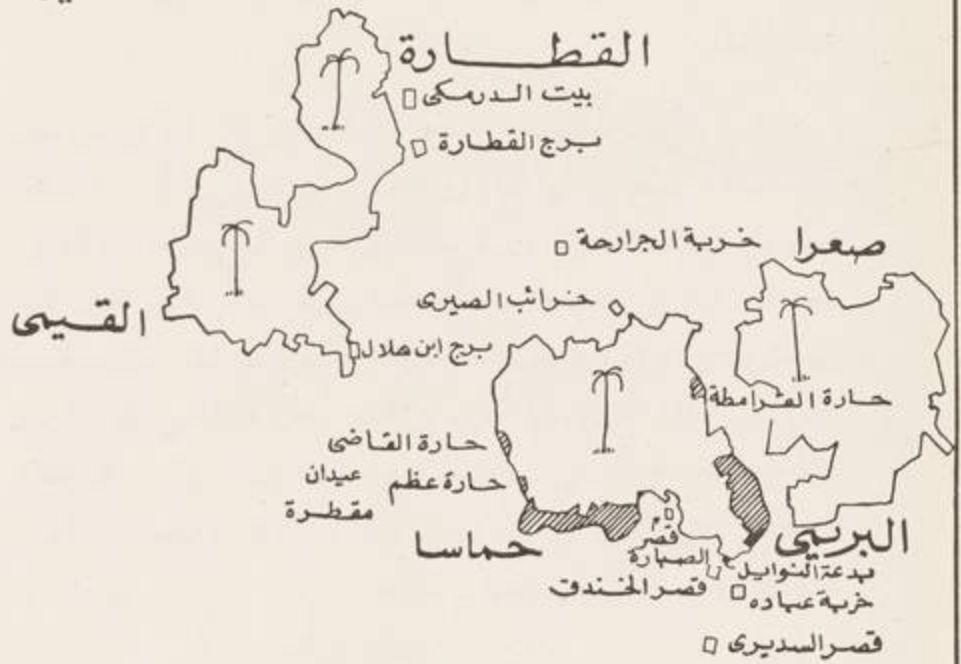 القطارة
بيت الدرمكى
برج القطارة
صعرا
خربة الجراحة
خرائب الصيرى
القيمى
برج ابن هلال
حارة القرامطة
حارة القاضى
حارة عظم
عيدان
مقطرة
حماسا
قصر
الصبارة
البريمى
بدعة النوايل
قصر الخندق
خربة عباده
قصر السديرى